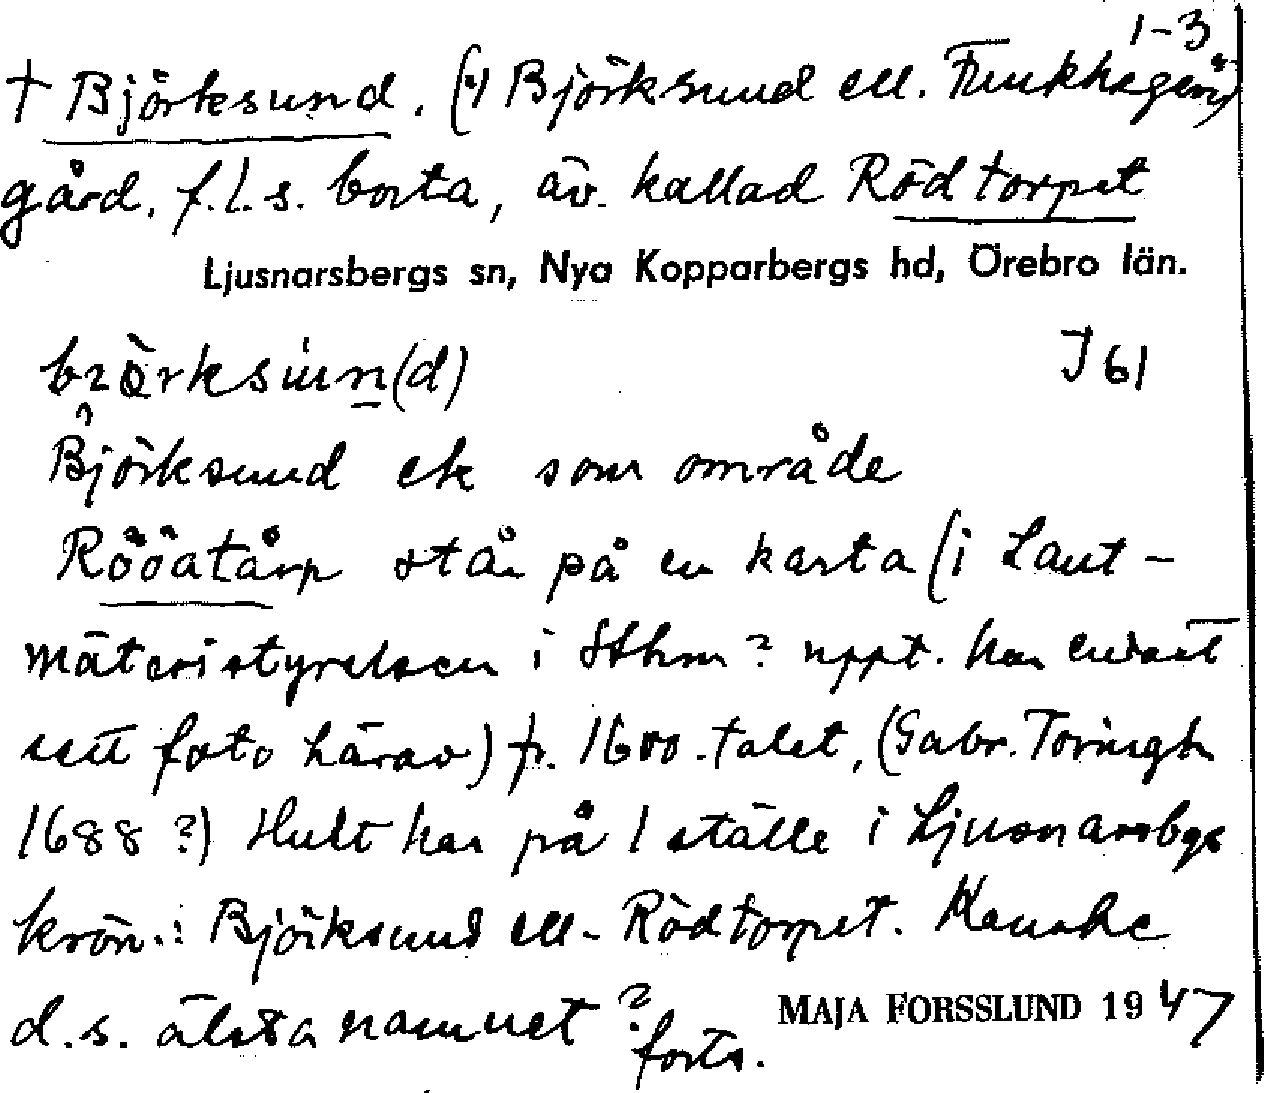 1-3
† Björksund. (4 Björksund ell. Finnkhagen)
gård, f.l.s. borta, äv. kallad Rödtorpet
Ljusnarsbergs sn, Nya Kopparbergs hd, Örebro län.
J 61
Björksund ek som område
Rööatårp står på en karta (i Lant-
mäteristyrelsen i Sthm? uppt. har endast
sett foto härav) fr. 1600-talet, (Gabr. Toringh
1688 ?) Hult har på 1 ställe i Ljusnarsbgs
krön.: Björksund ell. Rödtorpet. Kanske
d.s. älsta namnet?
forts.
MAJA FORSSLUND 1947